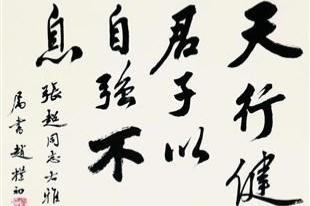 天行健
君子以
自強不
息
張超同志方雅
屬書趙樸初